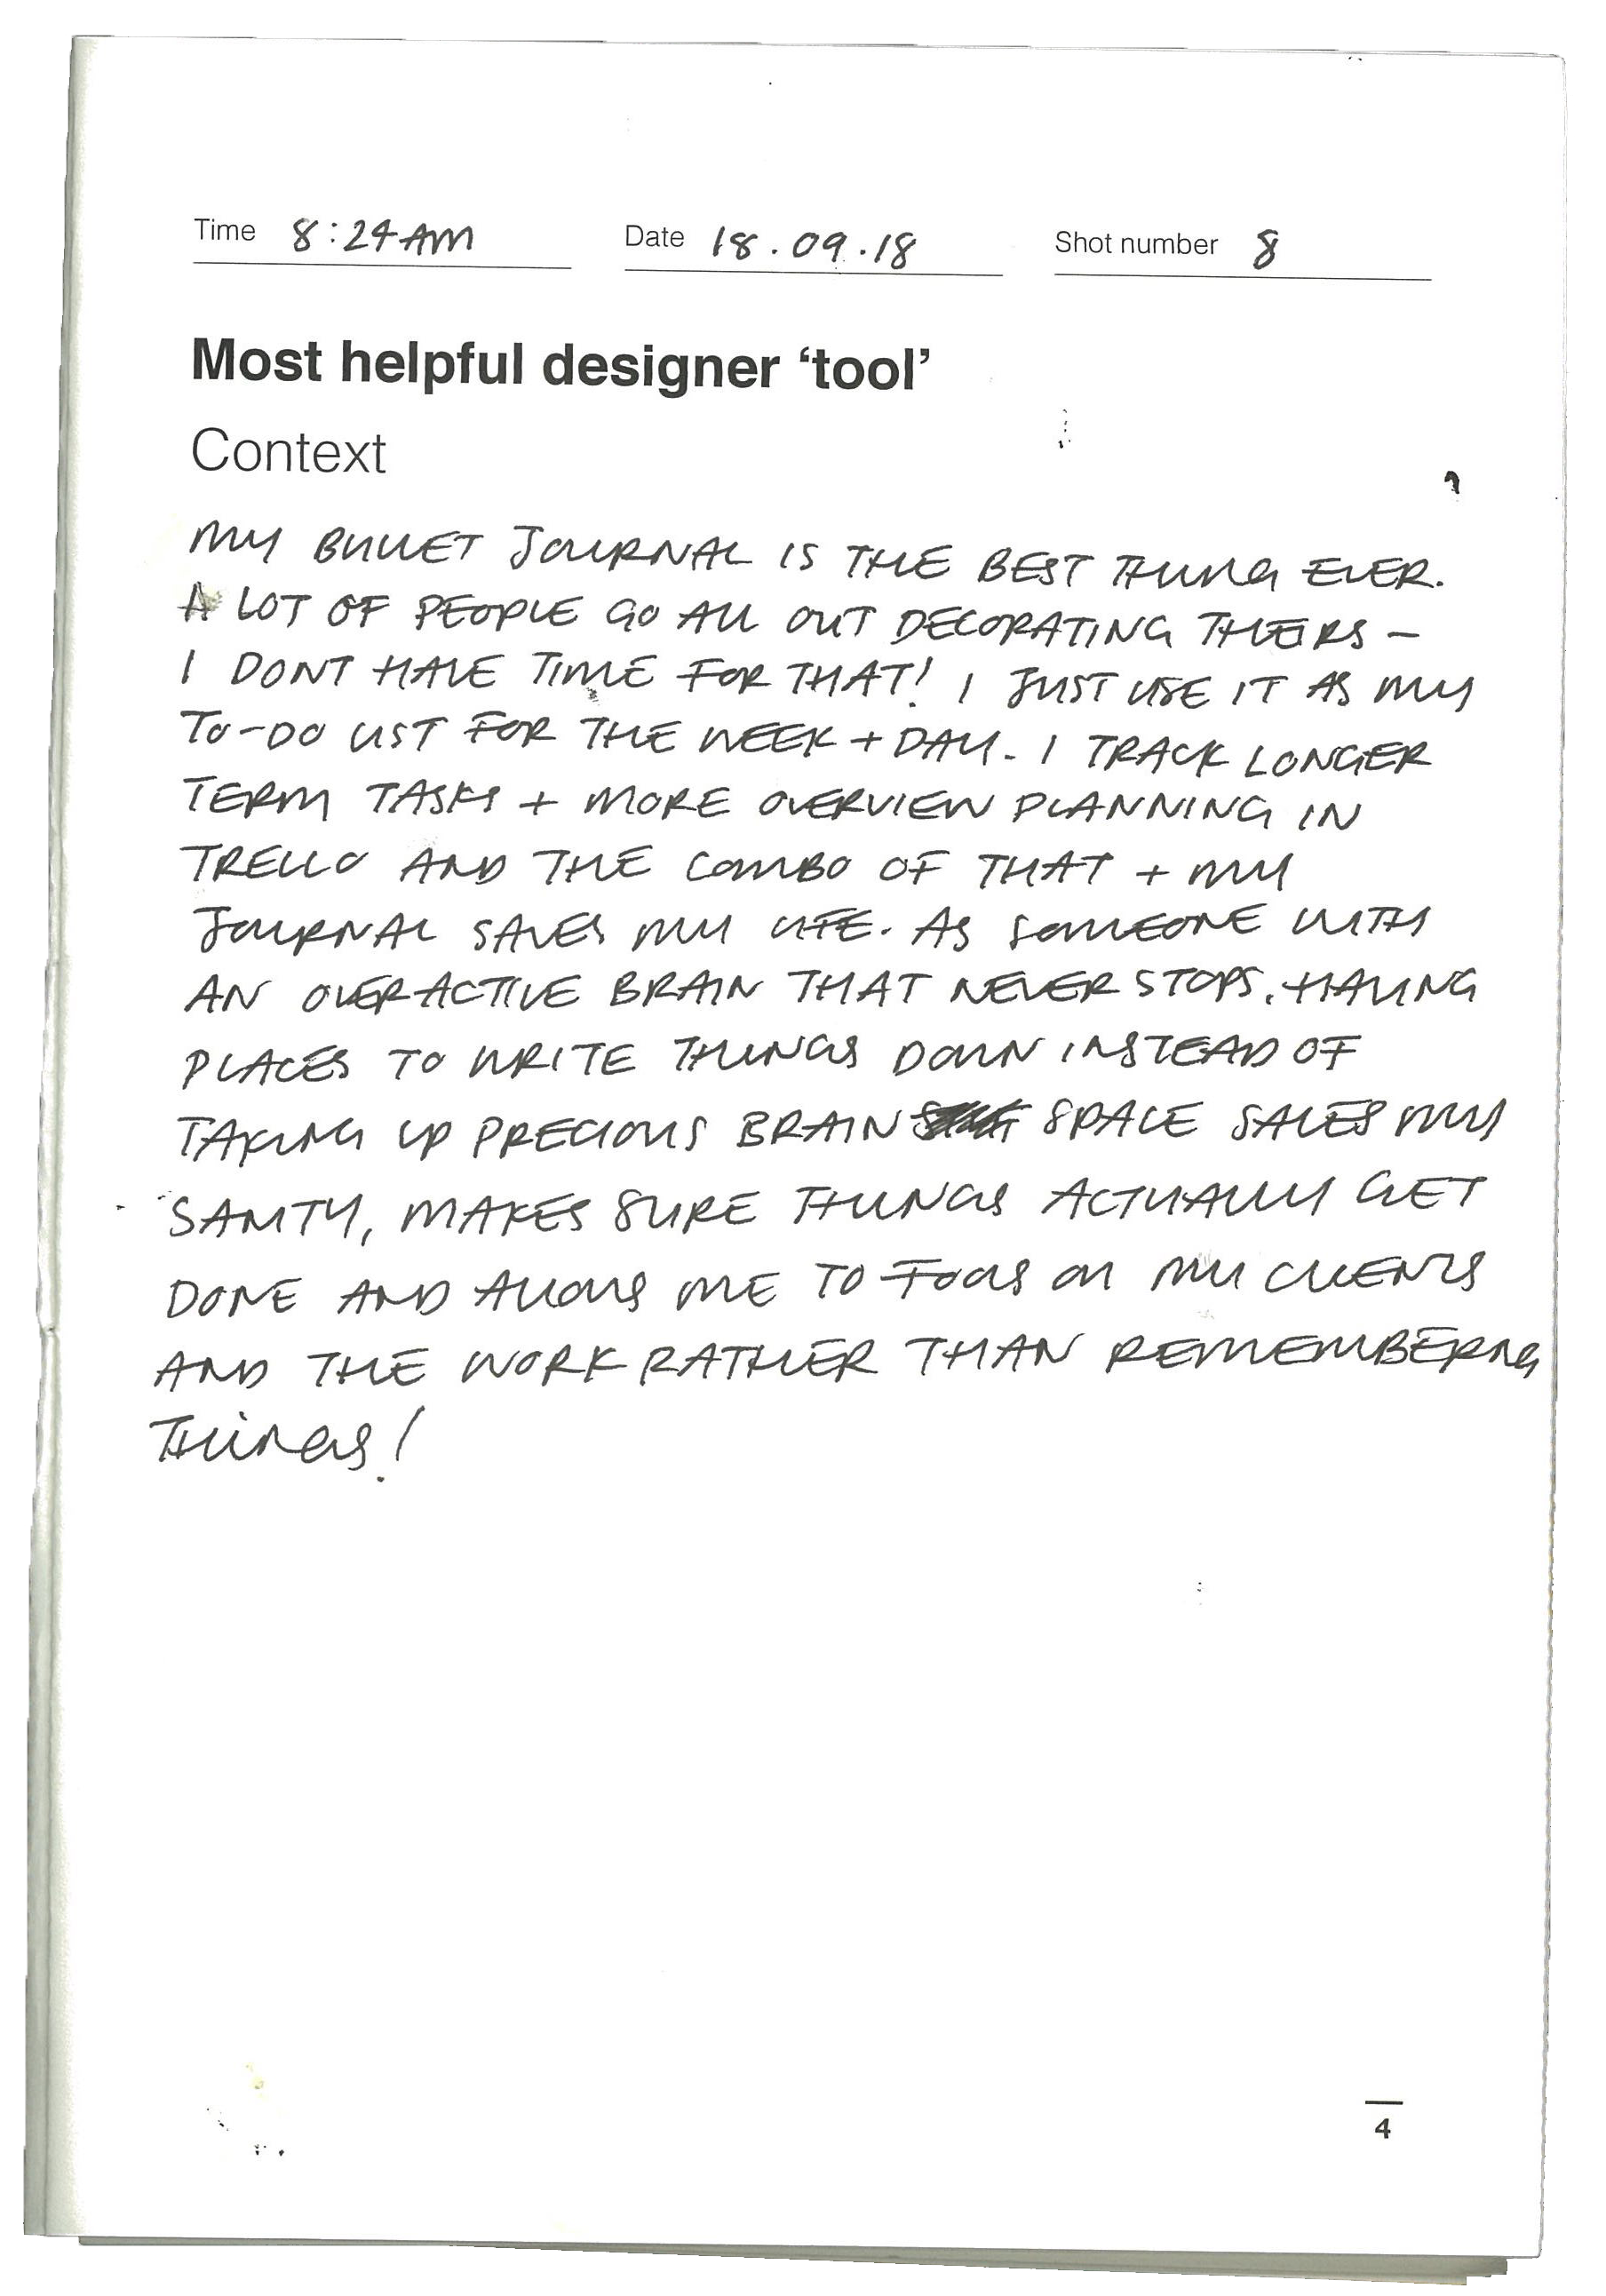 Time 8:24AM Date 18.09.18 Shot number 8
Most helpful designer ‘tool’
Context
MY BULLET JOURNAL IS THE BEST THING EVER.
A LOT OF PEOPLE GO ALL OUT DECORATING THEIRS –
I DONT HAVE TIME FOR THAT! I JUST USE IT AS MY
TO-DO LIST FOR THE WEEK + DAY. I TRACK LONGER
TERM TASKS + MORE OVERVIEW PLANNING IN
TRELLO AND THE COMBO OF THAT + MY
JOURNAL SAVES MY LIFE. AS SOMEONE WITH
AN OVERACTIVE BRAIN THAT NEVER STOPS, HAVING
PLACES TO WRITE THINGS DOWN INSTEAD OF
TAKING UP PRECIOUS BRAIN SPACE SAVES MY
SANITY, MAKES SURE THINGS ACTUALLY GET
DONE AND ALLOWS ME TO FOCUS ON MY CLIENTS
AND THE WORK RATHER THAN REMEMBERING
THINGS!
4